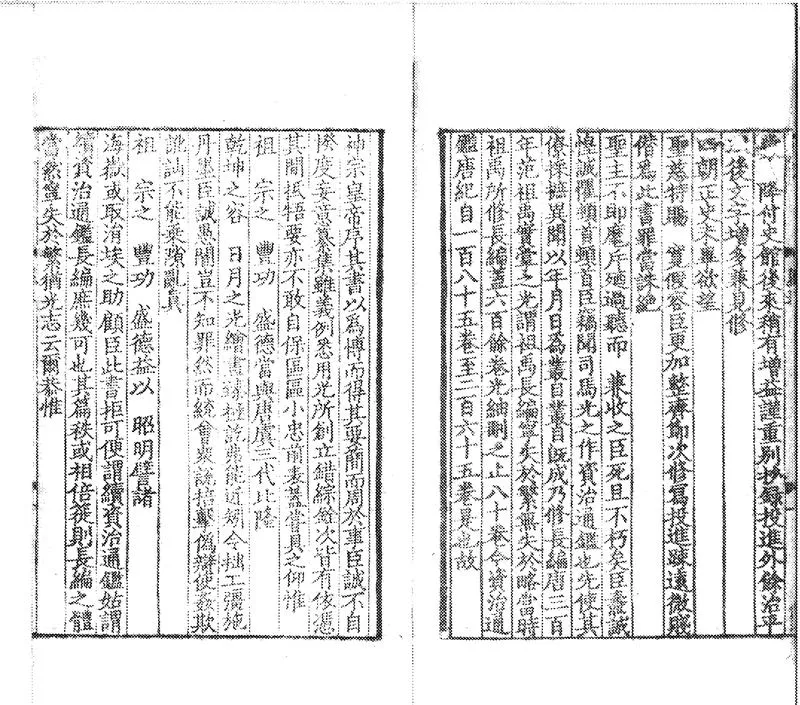 降付史館後來稍有增益謹重別抄錄投進外餘治平
以後文字增多兼見修
四朝正史未畢欲望
聖慈特賜 寬假容臣更加整齊節次修寫投進踈遠微賤
僭爲此書罪當誅絶
聖主不即麾斥廼過聽而 兼收之臣死且不朽矣臣燾誠
惶誠懼頓首頓首臣竊聞司馬光之作資治通鑑也先使其
僚採摭異聞以年月日爲叢目叢目既成乃修長編唐三百
年范祖禹實掌之光謂祖禹長編寧失於繁無失於略當時
祖禹所修長編蓋六百餘卷光細刪之止八十卷今資治通
鑑唐紀自一百八十五卷至二百六十五卷是也故
神宗皇帝序其書以爲博而得其要簡而周於事臣誠不自
揆度妄意纂集雖義例悉用光所創立錯綜銓次皆有依憑
其間抵牾要亦不敢自保區區小忠前表蓋嘗具之仰惟
祖 宗之 豐功 盛德當與唐虞三代比隆
乾坤之容 日月之光繪畫臻極訖弗能近矧令拙工彊施
丹墨臣誠愚闇豈不知罪然而統會衆說掊擊僞辯使姦欺
訛訕不能乘隙亂真
祖 宗之 豐功 盛德益以 昭明譬諸
海嶽或取涓埃之助顧臣此書拒可便謂續資治通鑑姑謂
續資治通鑑長編庶幾可也其篇秩或相倍蓰則長編之體
當然寧失於繁猶光志云爾恭惟